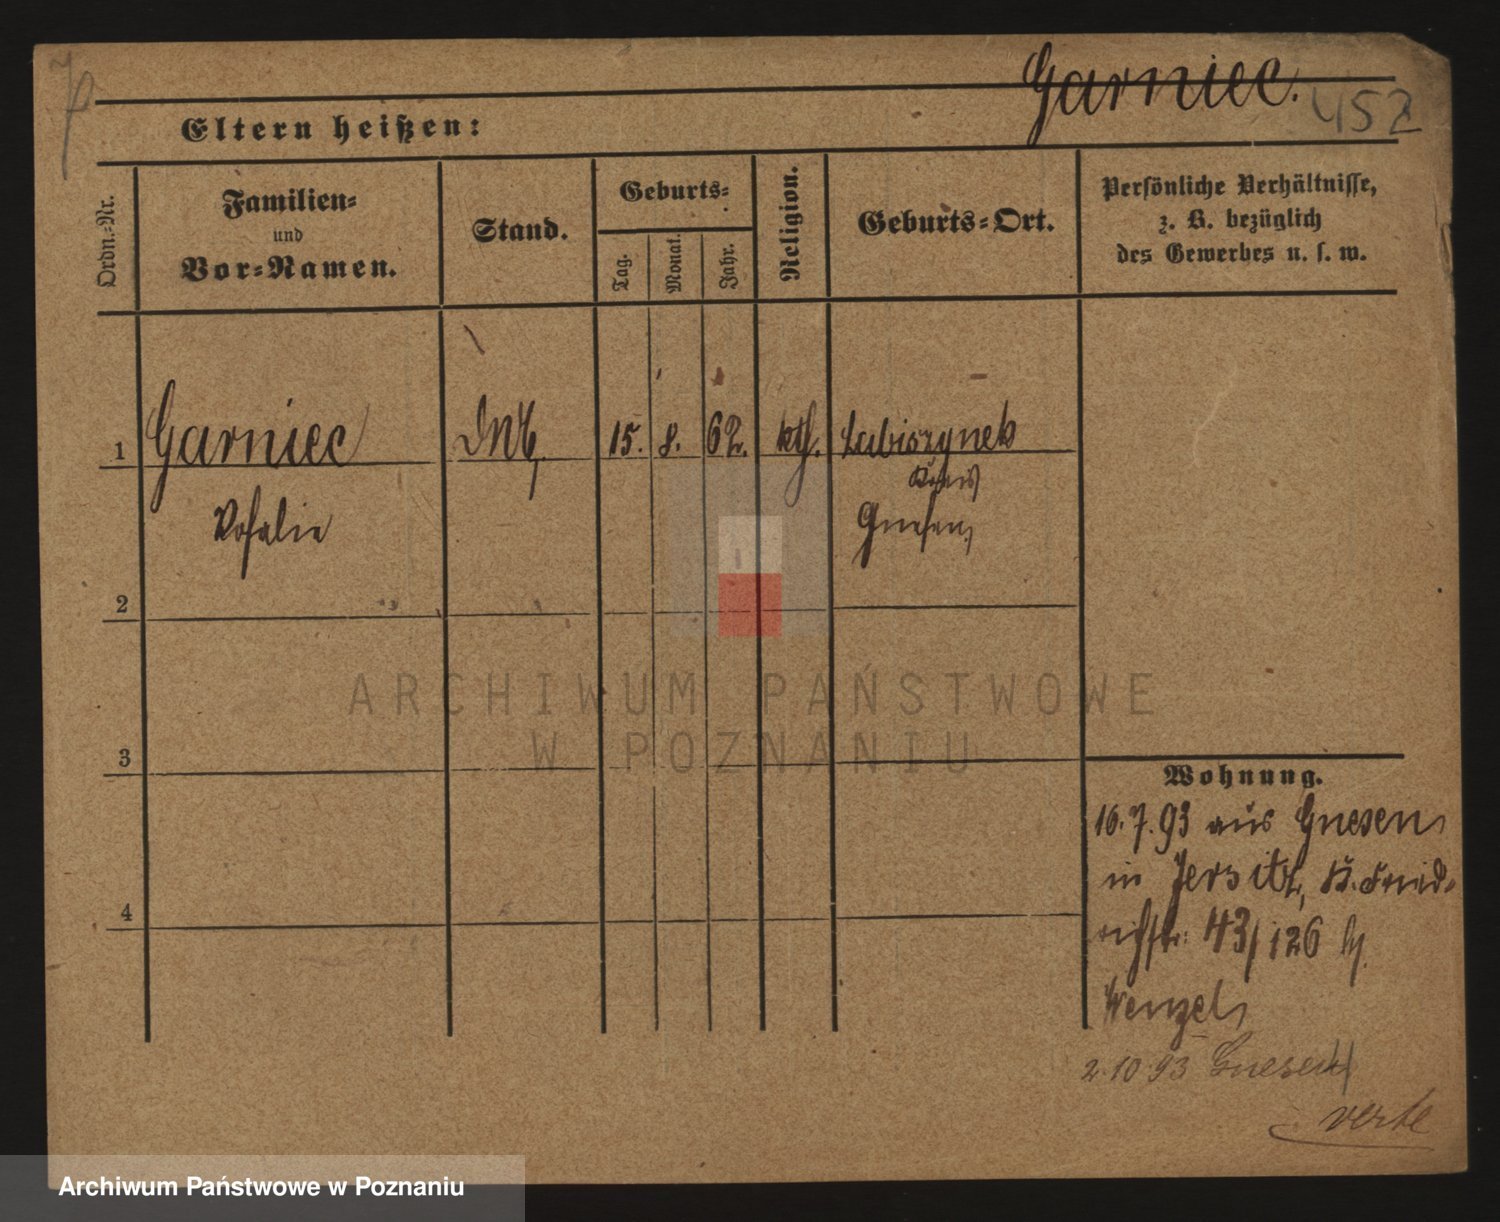 Garniec.
452
Eltern heißen:
Ordn.-Nr.
Familien-
und
Vor-Namen.
Stand.
Geburts-
Tag.
Monat.
Jahr.
Religion.
Geburts-Ort.
Persönliche Verhältnisse,
z. B. bezüglich
des Gewerbes u. s. w.
1 Garniec 15. 8. 62. kth. Lubiszynek
Kreis
Rosalie Gnesen
2
3
4
Wohnung.
16.7.93 aus Gnesen
in Jersitz, K. Fried-
richstr. 43/126 b/
Wenzel
2.10.93 Gnesen
verte
ARCHIWUM PAŃSTWOWE
W POZNANIU
Archiwum Państwowe w Poznaniu